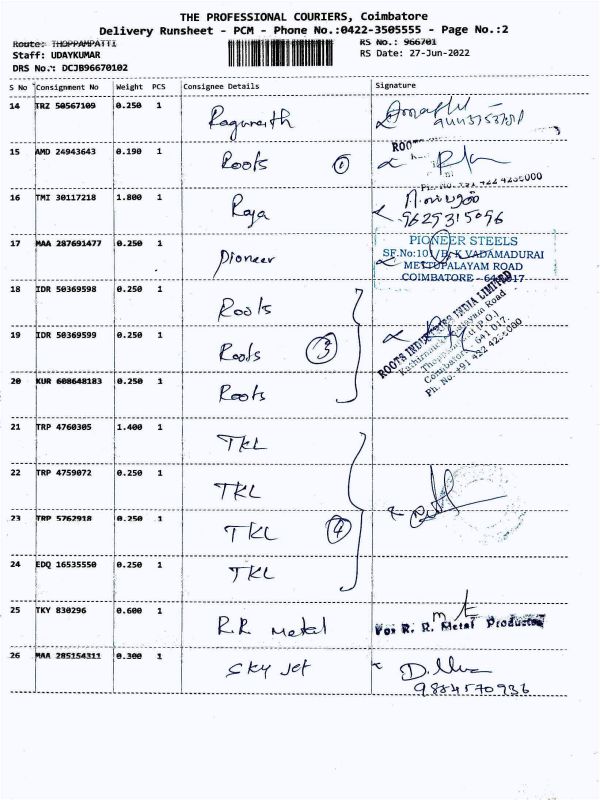 THE PROFESSIONAL COURIERS, Coimbatore
Delivery Runsheet - PCM - Phone No.:0422-3505555 - Page No.:2
Route: THOPPAMPATTI
RS No.: 966701
Staff: UDAYKUMAR
RS Date: 27-Jun-2022
DRS No.: DCJB96670102
S No Consignment No Weight PCS Consignee Details Signature
14 TRZ 50567109 0.250 1
15 AMD 24943643 0.190 1 Roots 1
16 TMI 30117218 1.800 1 Raja 9629315096
17 MAA 287691477 0.250 1 Pioneer
PIONEER STEELS
SF.No:101/B, K.VADAMADURAI
METTUPALAYAM ROAD
COIMBATORE -
18 IDR 50369598 0.250 1 Roots
19 IDR 50369599 0.250 1 Roots 3
20 KUR 608648183 0.250 1 Roots
ROOTS INDUSTRIES INDIA LIMITED
21 TRP 4760305 1.400 1 TKL
22 TRP 4759072 0.250 1 TKL
23 TRP 5762918 0.250 1 TKL 4
24 EDQ 16535550 0.250 1 TKL
25 TKY 830296 0.600 1 R.R. Metal
For R. R. Metal Products
26 MAA 285154311 0.300 1 Sky Jet
9884570936